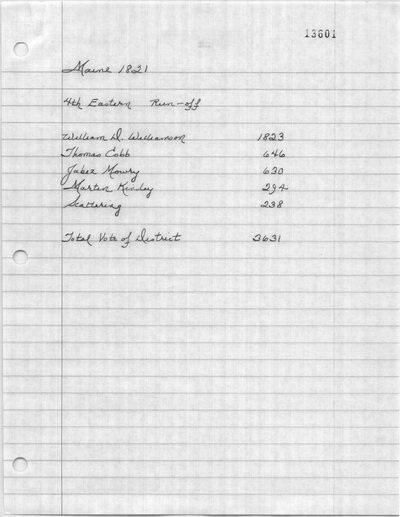 13601
Maine 1821
4th Eastern Run-off
William D. Williamson 1823
Thomas Cobb 646
Jabez Mowry 630
Martin Kinsley 294
Scattering 238
Total Vote of District 3631